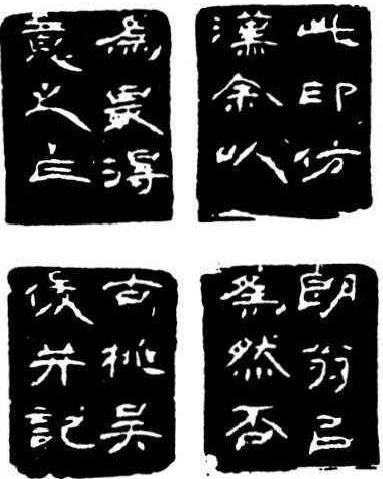 此印仿
漢余以
為最得
意之乍
朗翁㠯
為然否
古桃吴
俊并記